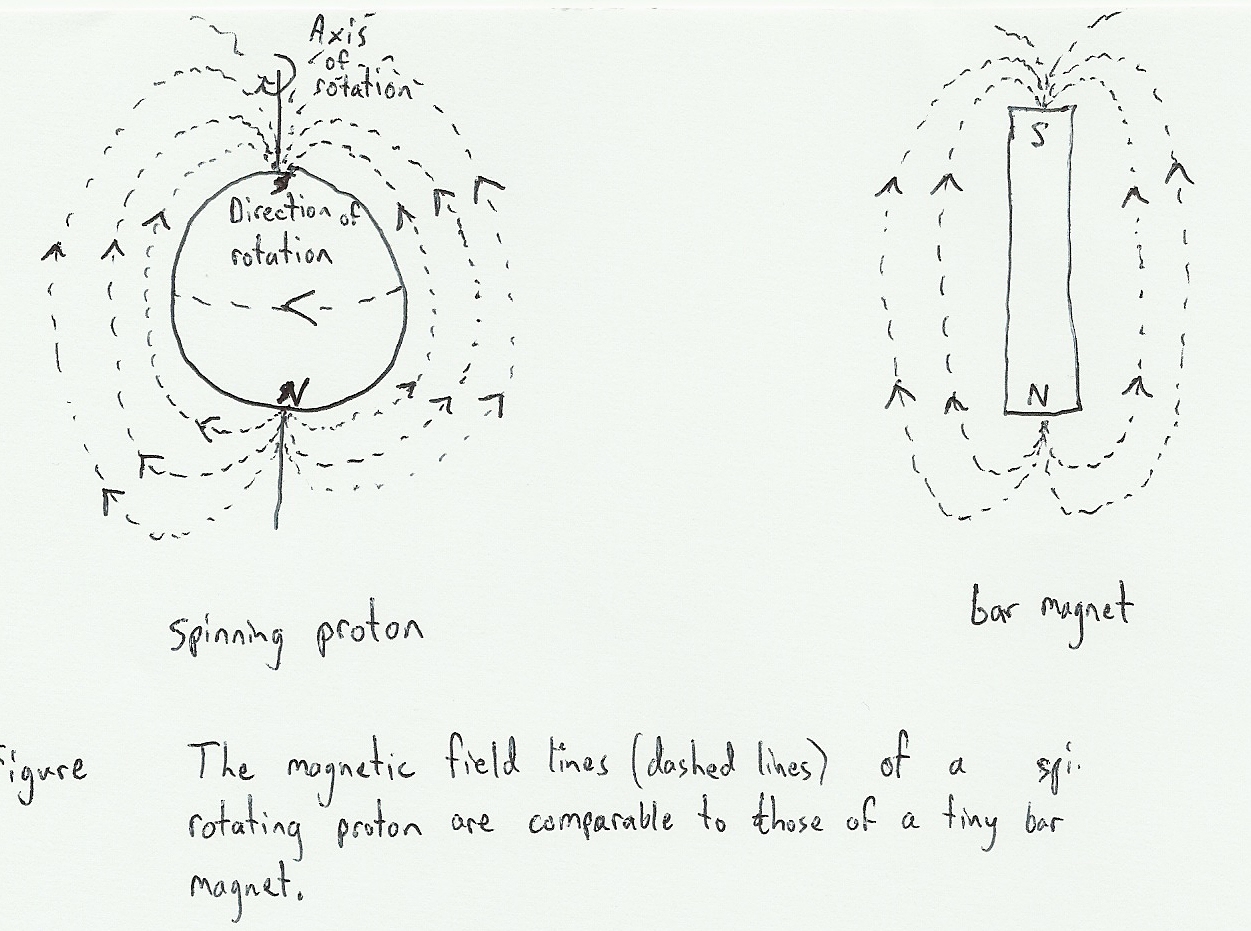 Axis
of
rotation
S
Direction of
rotation
N
S
N
spinning proton
bar magnet
Figure
The magnetic field lines (dashed lines) of a spi
rotating proton are comparable to those of a tiny bar
magnet.